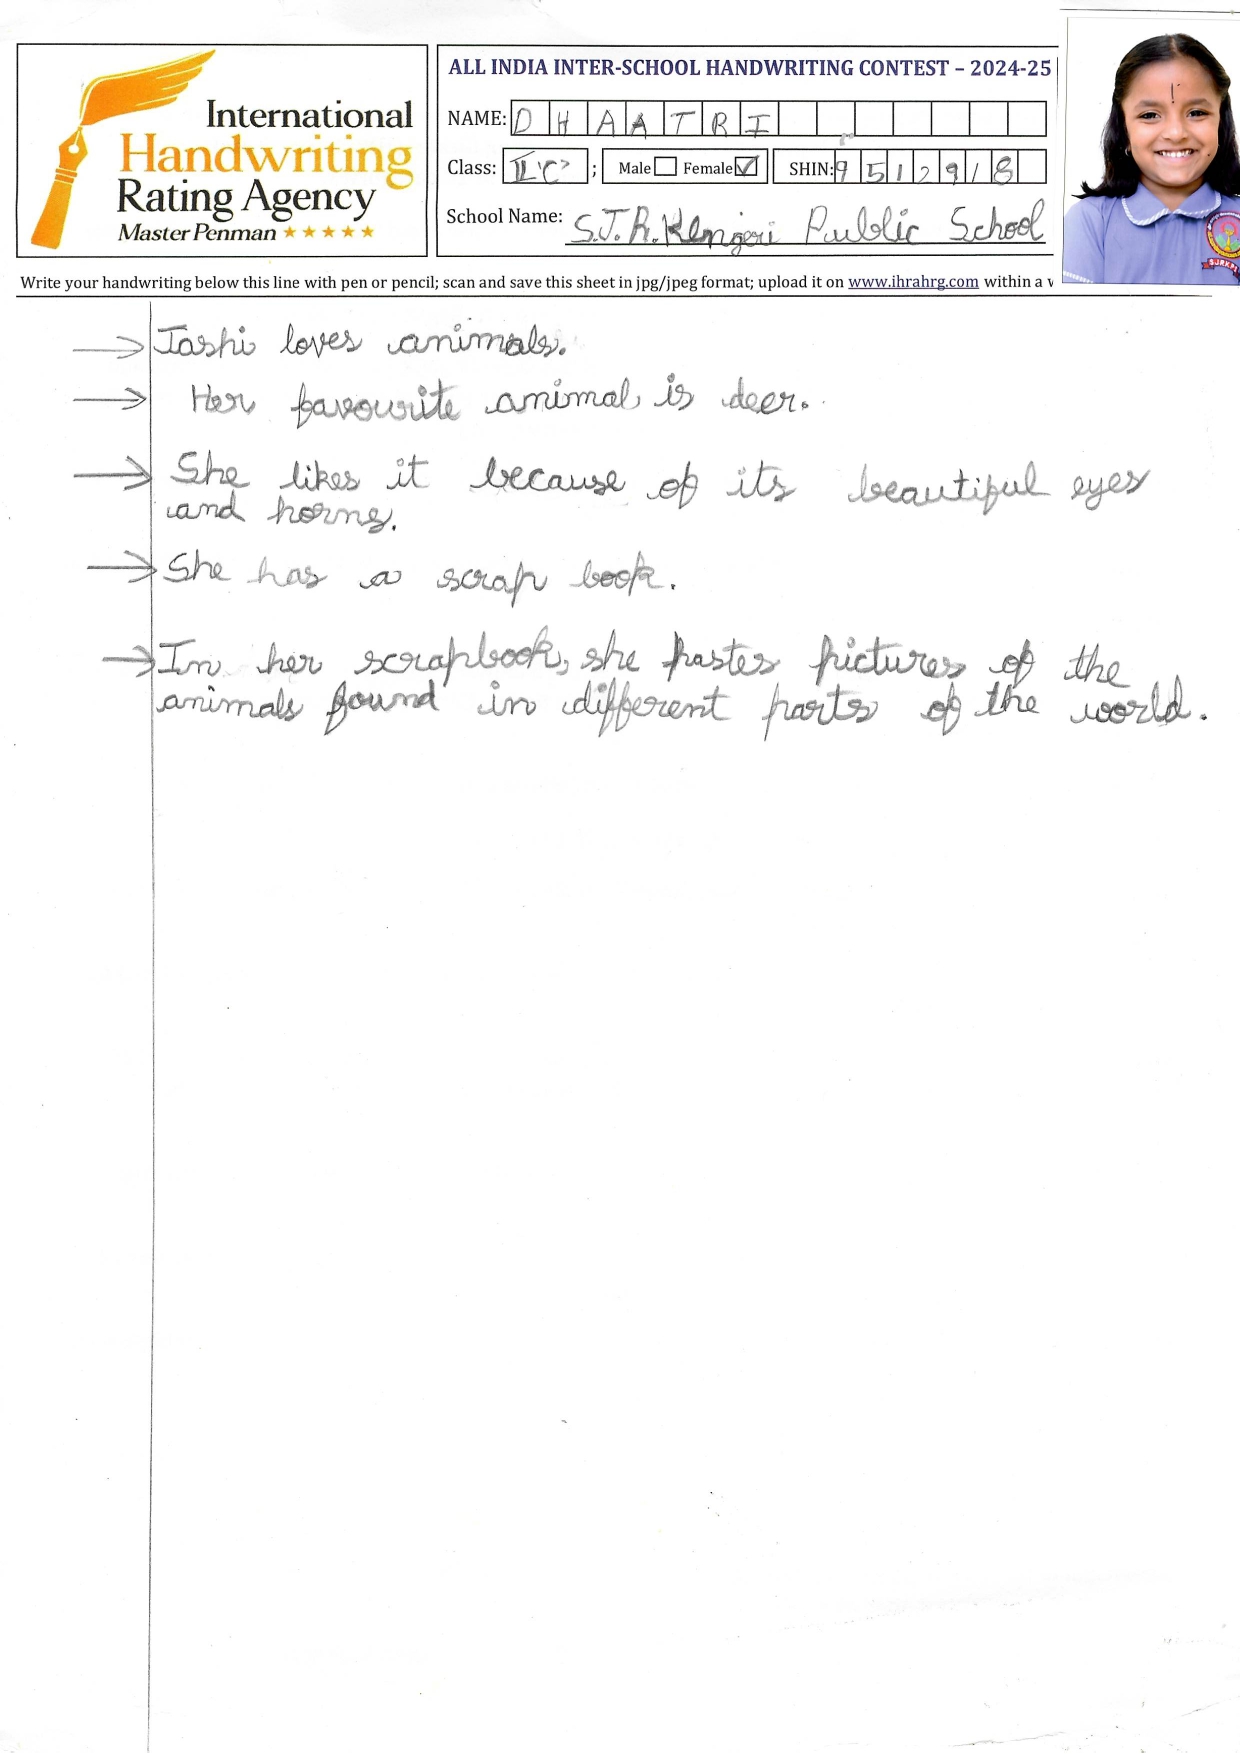 International
Handwriting
Rating Agency
Master Penman ★★★★★
ALL INDIA INTER-SCHOOL HANDWRITING CONTEST – 2024-25
NAME: DHAATRI
Class: II 'C' ; Male Female ✓ SHIN: 9512918
School Name: S.J.R. Kengeri Public School
Write your handwriting below this line with pen or pencil; scan and save this sheet in jpg/jpeg format; upload it on www.ihrahrg.com within a
→ Tashi loves animals.
→ Her favourite animal is deer.
→ She likes it because of its beautiful eyes
and horns.
→ She has a scrap book.
→ In her scrapbook, she pastes pictures of the
animals found in different parts of the world.
SJRKPS